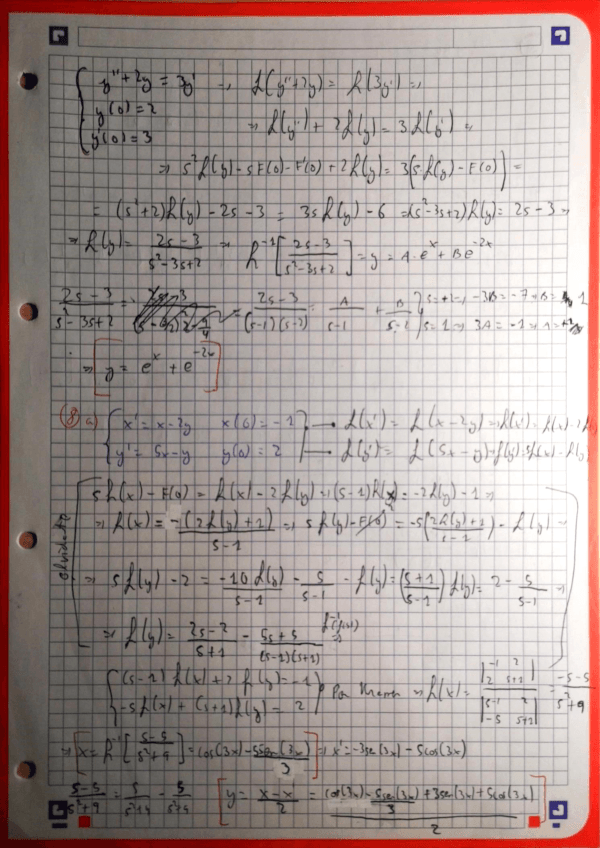 y'' + 2y = 3y' → L(y''+2y) = L(3y') ⇒
y(0) = 2
y'(0) = 3 ⇒ L(y'') + 2L(y) = 3L(y') ⇒
⇒ s²L(y) - sF(0) - F'(0) + 2L(y) = 3(sL(y) - F(0)) =
= (s²+2)L(y) - 2s - 3 = 3sL(y) - 6 ⇒ (s²-3s+2)L(y) = 2s - 3 ⇒
⇒ L(y) = (2s-3)/(s²-3s+2) ⇒ L⁻¹[(2s-3)/(s²-3s+2)] = y = A·eˣ + Be⁻²ˣ
(2s-3)/(s²-3s+2) = (2s-3)/((s-1)(s-2)) = A/(s-1) + B/(s-2)
⇒ [y = eˣ + e⁻²ˣ]
8 a) x' = x-2y x(0) = -1 → L(x') = L(x-2y)
y' = 5x-y y(0) = 2 → L(y') = L(5x-y)
Olvidarlo
sL(x) - F(0) = L(x) - 2L(y) ⇒ (s-1)L(x) = -2L(y) - 1 ⇒
⇒ L(x) = -(2L(y)+1)/(s-1) ⇒ sL(y) - F(0) = -5((2L(y)+1)/(s-1)) - L(y) ⇒
⇒ sL(y) - 2 = -10L(y)/(s-1) - 5/(s-1) - L(y) = ((s+1)/(s-1))L(y) = 2 - 5/(s-1) ⇒
⇒ L(y) = (2s-2)/(s+1) - (5s+5)/((s-1)(s+1)) ⇒
(s-1)L(x) + 2L(y) = -1
-5L(x) + (s+1)L(y) = 2 Por Kramer ⇒ L(x) = |-1 2; 2 s+1| / |s-1 2; -5 s+1| = (-s-5)/(s²+9)
⇒ [x = L⁻¹[(s-5)/(s²+9)] = cos(3x) - 5sen(3x)/3] ⇒ x' = -3sen(3x) - 5cos(3x)
(s-5)/(s²+9) = s/(s²+9) - 5/(s²+9) [y = (x-x')/2 = (cos(3x) - 5sen(3x)/3 + 3sen(3x) + 5cos(3x))/2]